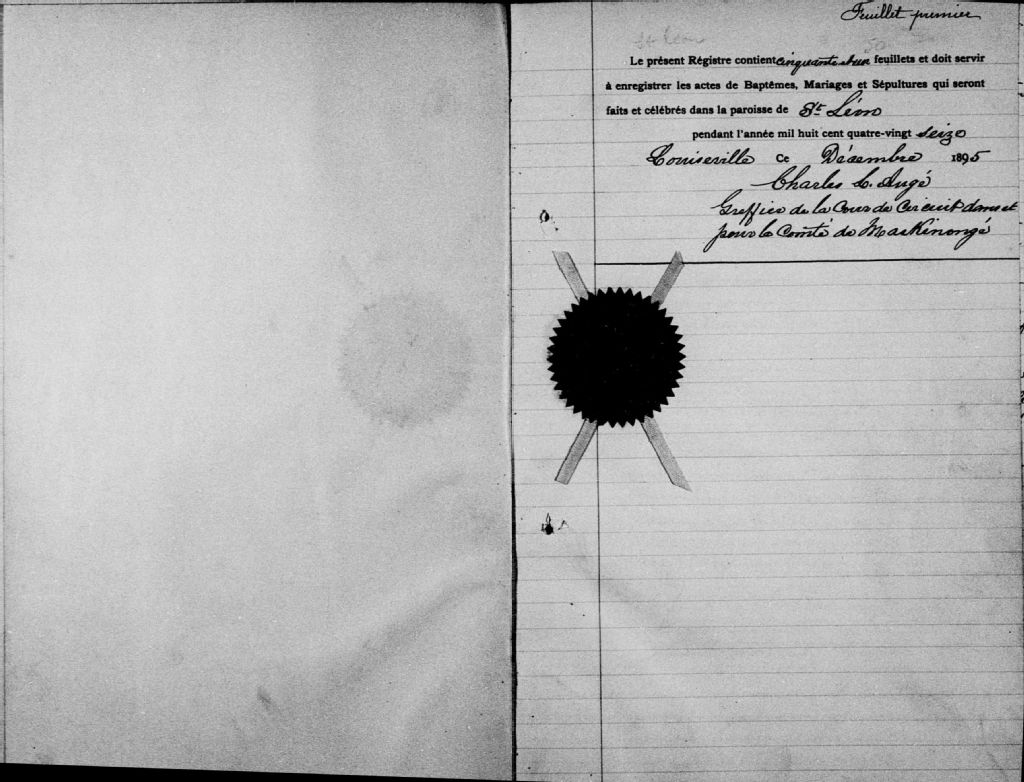 Feuillet premier
St Léon
50
Le présent Régistre contient cinquante et un feuillets et doit servir
à enregistrer les actes de Baptêmes, Mariages et Sépultures qui seront
faits et célébrés dans la paroisse de St Léon
pendant l'année mil huit cent quatre-vingt seize
Louiseville Ce Décembre 1895
Charles L. Augé
Greffier de la Cour de Circuit dans et
pour le Comté de Maskinongé